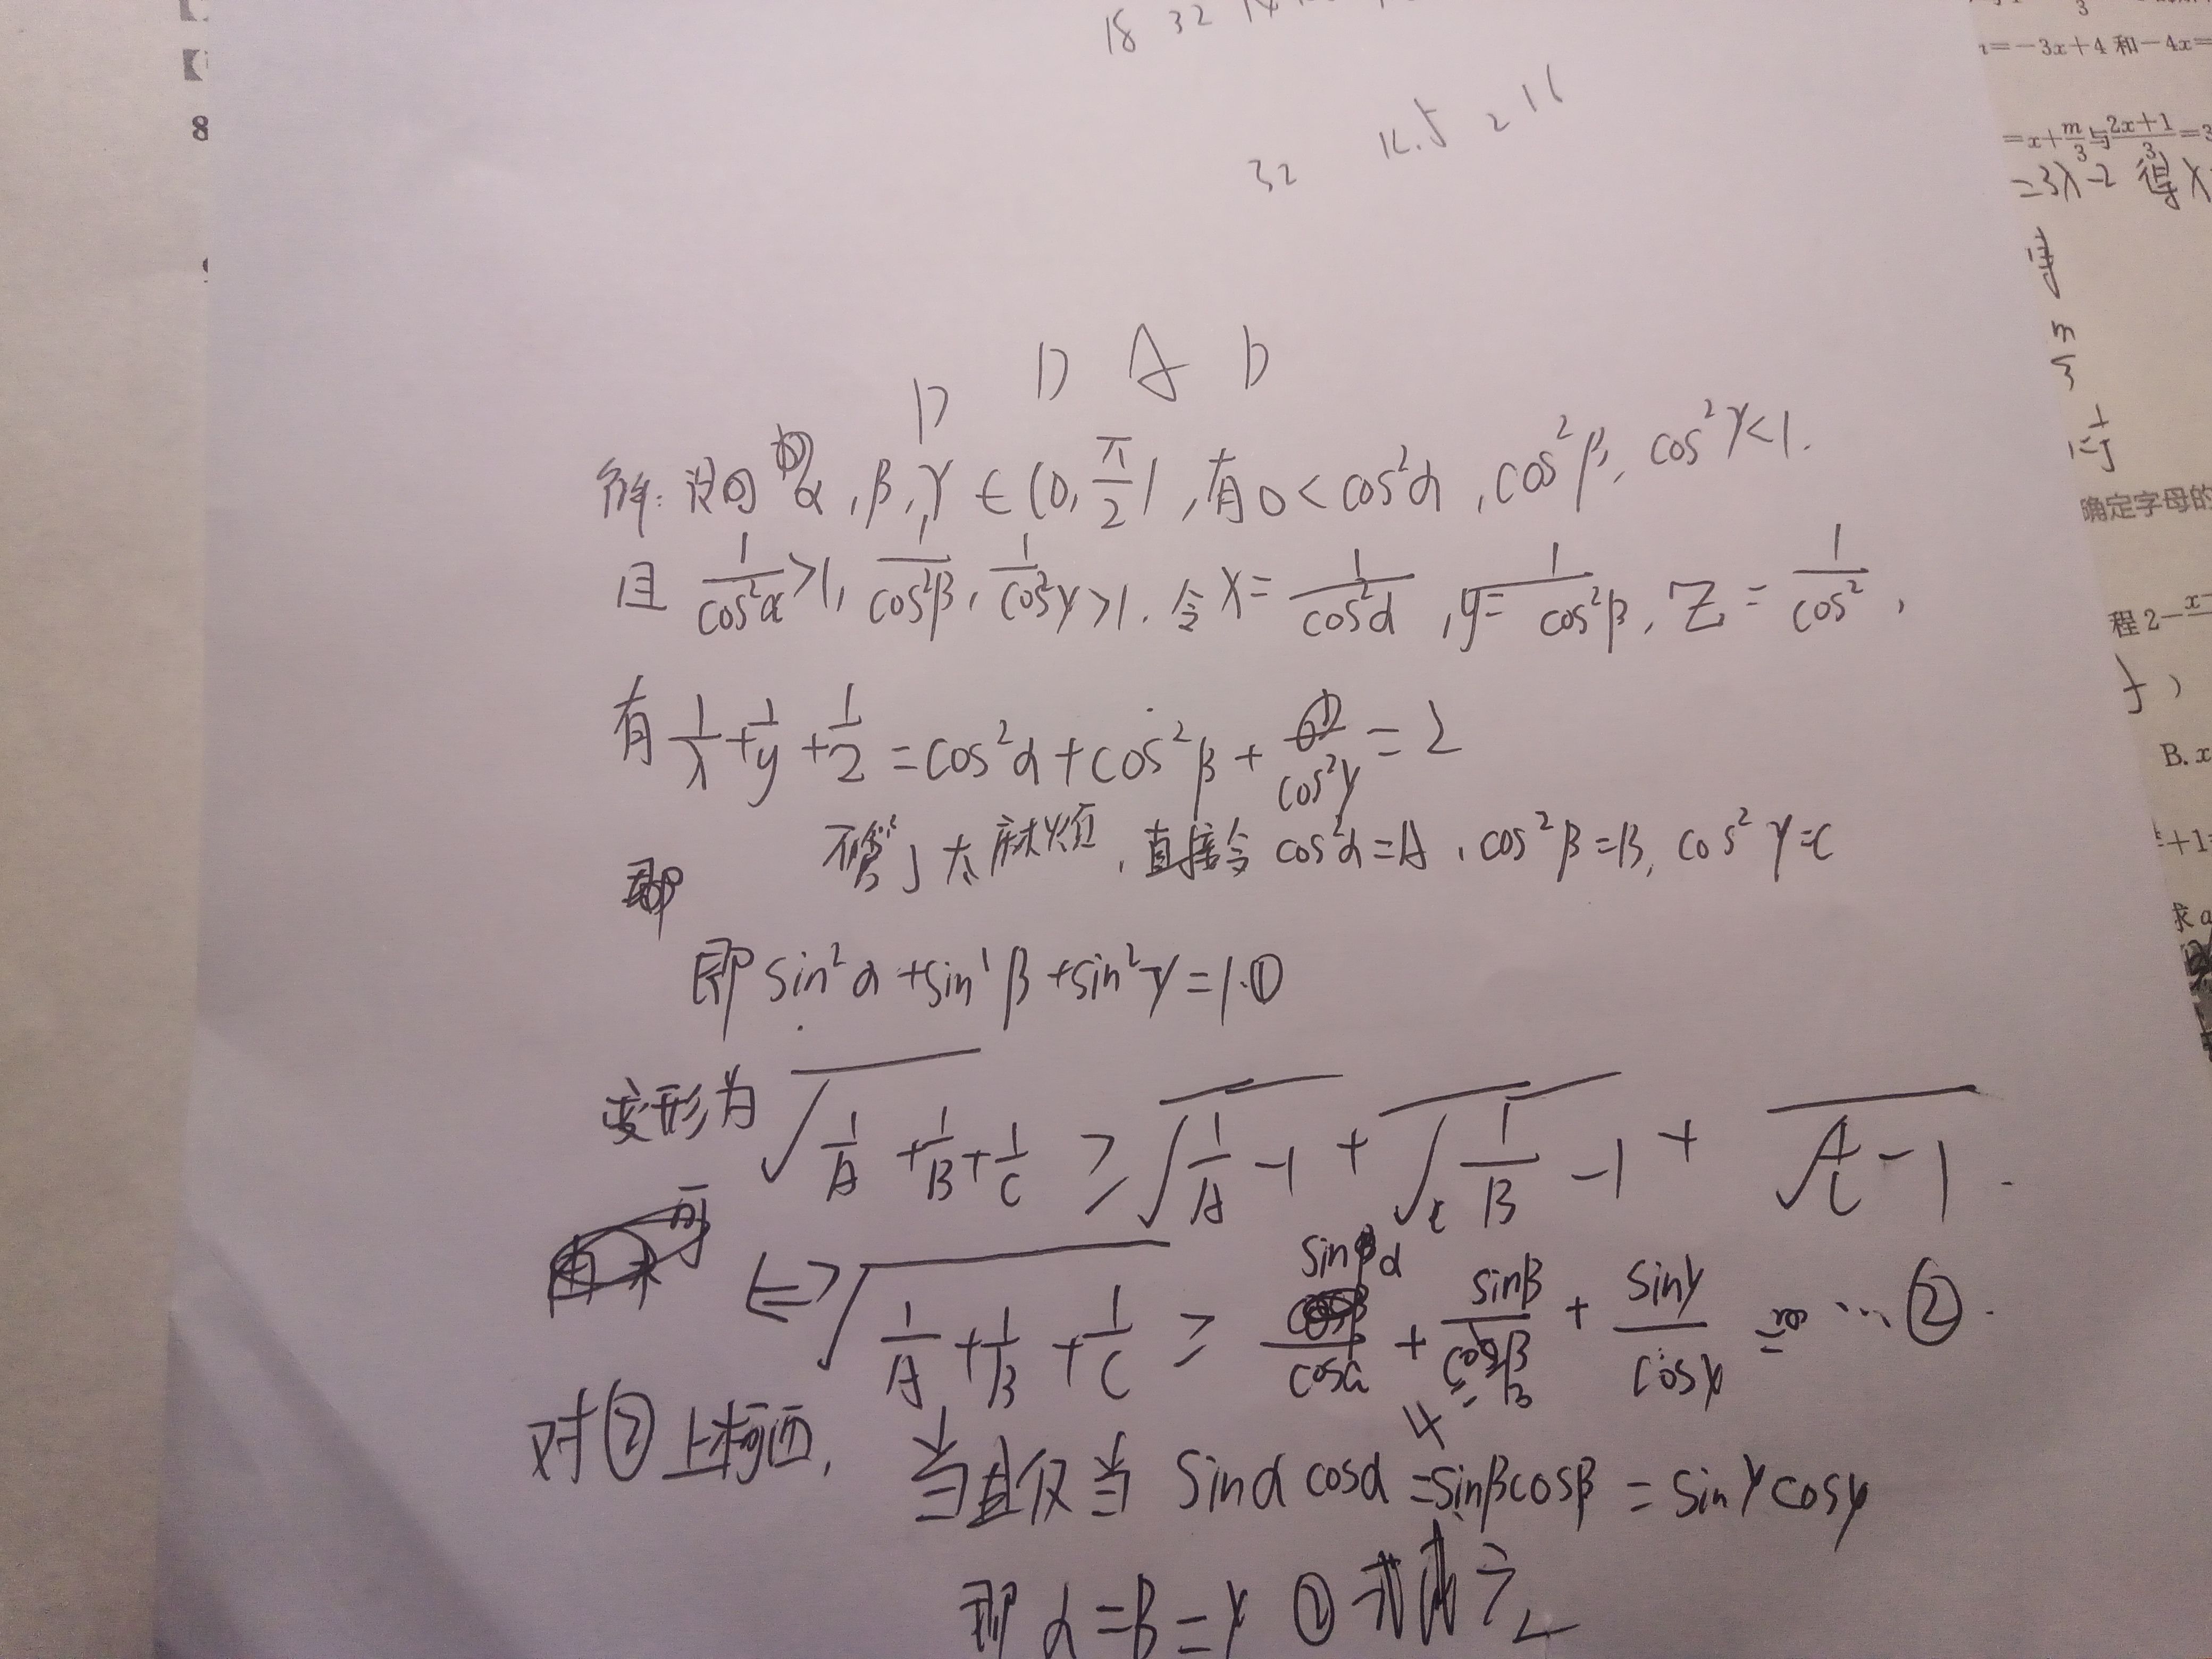 18 32
32 16.5 216
D D A D
解:设 α,β,γ∈(0,π/2),有0<cos²α,cos²β,cos²γ<1.
且 1/cos²α>1, 1/cos²β, 1/cos²γ>1. 令 x=1/cos²α, y=1/cos²β, Z=1/cos²,
有 1/x+1/y+1/z=cos²α+cos²β+cos²γ=2
不管了太麻烦,直接令 cos²α=A,cos²β=B,cos²γ=C
即 sin²α+sin²β+sin²γ=1.①
变形为 √(1/A+1/B+1/C) ≥ √(1/A-1)+√(1/B-1)+√(1/C-1).
⇔ √(1/A+1/B+1/C) ≥ sinα/cosα+sinβ/cosβ+sinγ/cosγ …②.
对②上柯西, 当且仅当 sinαcosα=sinβcosβ=sinγcosγ
即 α=β=γ
8
=-3x+4 和-4x=
=x+m/3与(2x+1)/3=3
=3x-2 得x
确定字母的
程2-
B. x
+1
求a